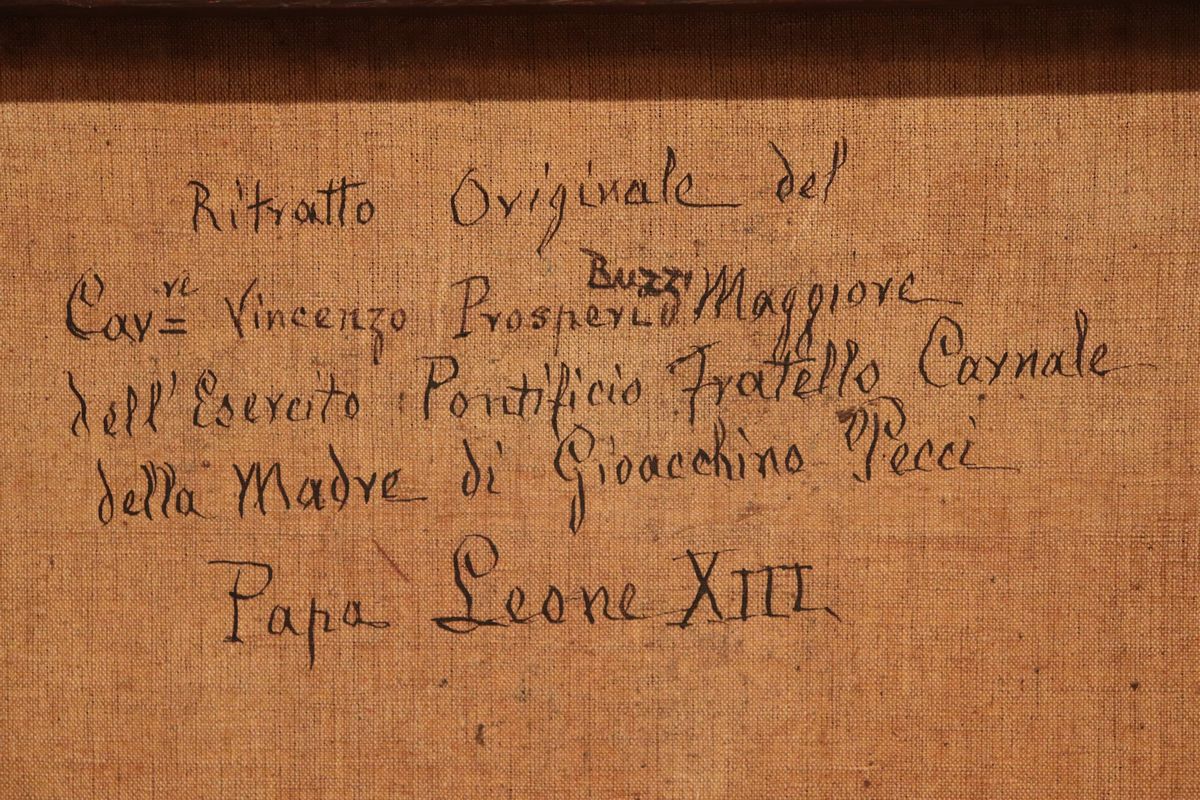 Ritratto Originale del
Cav.re Vincenzo Prosperi Buzzi Maggiore
dell'Esercito Pontificio Fratello Carnale
della Madre di Gioacchino Pecci
Papa Leone XIII